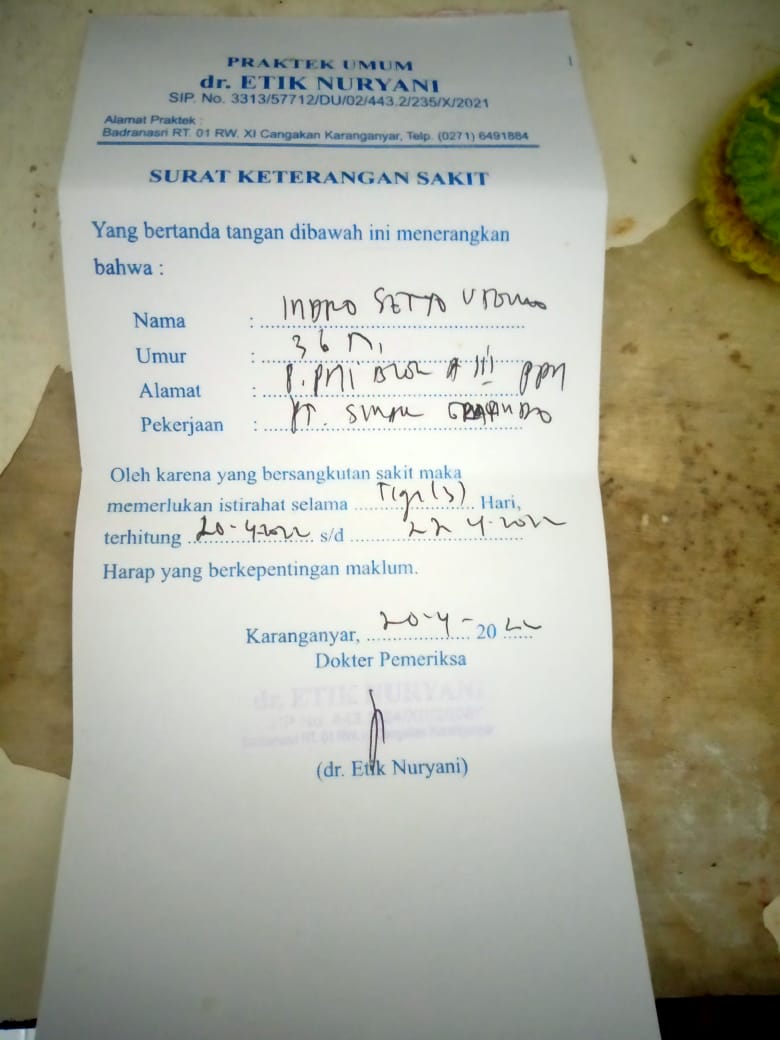 PRAKTEK UMUM
dr. ETIK NURYANI
SIP. No. 3313/57712/DU/02/443.2/235/X/2021
Alamat Praktek :
Badranasri RT. 01 RW. XI Cangakan Karanganyar, Telp. (0271) 6491884
SURAT KETERANGAN SAKIT
Yang bertanda tangan dibawah ini menerangkan
bahwa :
Nama : INDRO SETYO UTOMO
Umur : 36
Alamat : P. PMI BLOK A III PPM
Pekerjaan : PT.
Oleh karena yang bersangkutan sakit maka
memerlukan istirahat selama Tiga (3) Hari,
terhitung 20-4-2022 s/d 22 4-2022
Harap yang berkepentingan maklum.
Karanganyar, 20-4- 20 22
Dokter Pemeriksa
dr. ETIK NURYANI
(dr. Etik Nuryani)